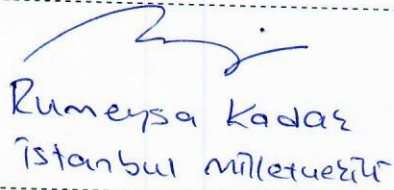 Rumeysa Kadak
İstanbul Milletvekili